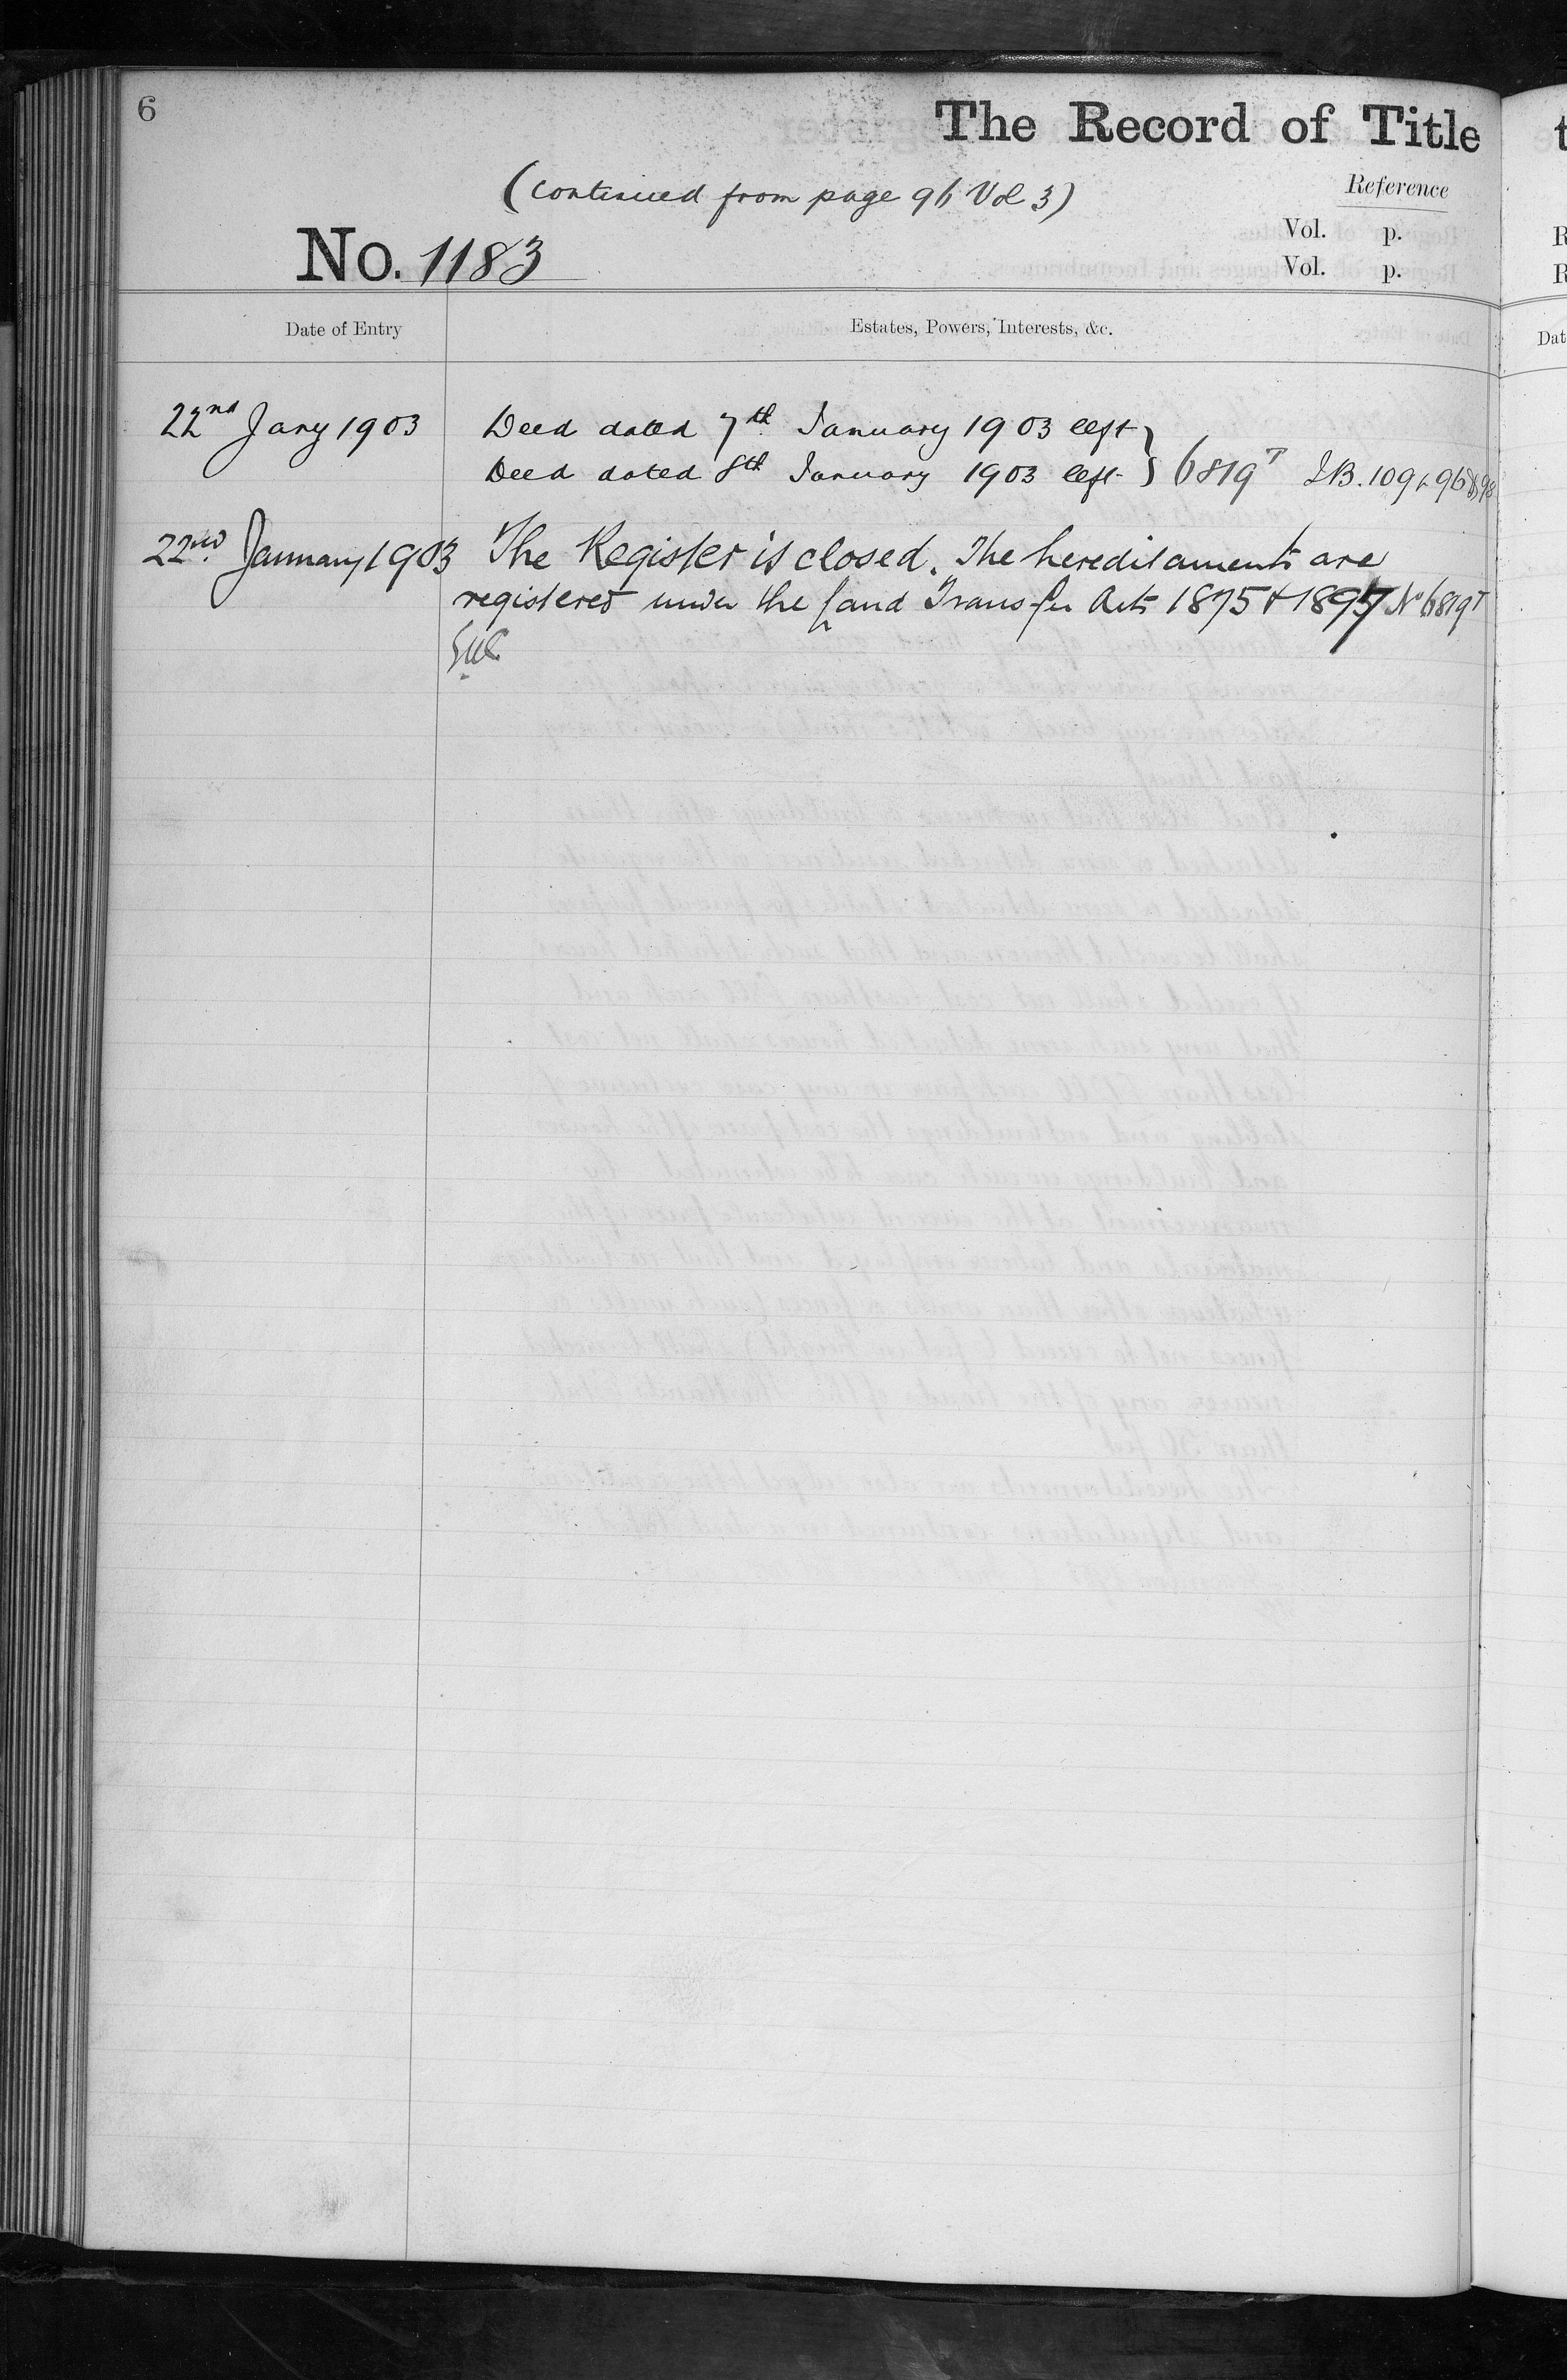 6
The Record of Title
(Continued from page 96 Vol 3)
Reference
Vol. p.
No. 1183
Vol. p.
Date of Entry
Estates, Powers, Interests, &c.
22nd Jany 1903 Deed dated 7th January 1903 left
Deed dated 8th January 1903 left } 6819T I.B. 109 & 96
22nd January 1903 The Register is closed. The hereditaments are
registered under the Land Transfer Acts 1875 & 1897 No 6819T
R
R
Dat